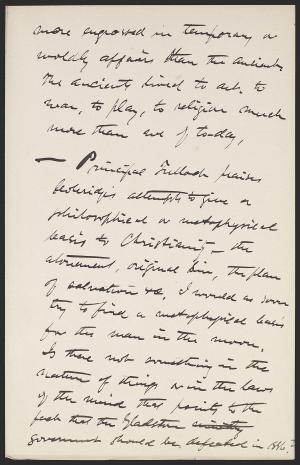 more engrossed in temporary or
worldly affairs than the ancients
The ancients lived to art, to
war, to play, to religion much
more than we of to-day,
— Principal Tulloch praises
Coleridge's attempts to give a
philosophical or metaphysical
basis to Christianity — the
atonement, original sin, the plan
of salvation &c. I would as soon
try to find a metaphysical basis
for the man in the moon.
Is there not something in the
nature of things or in the laws
of the mind that points to the
fact that the Gladstone ministry
government should be defeated in 1886?